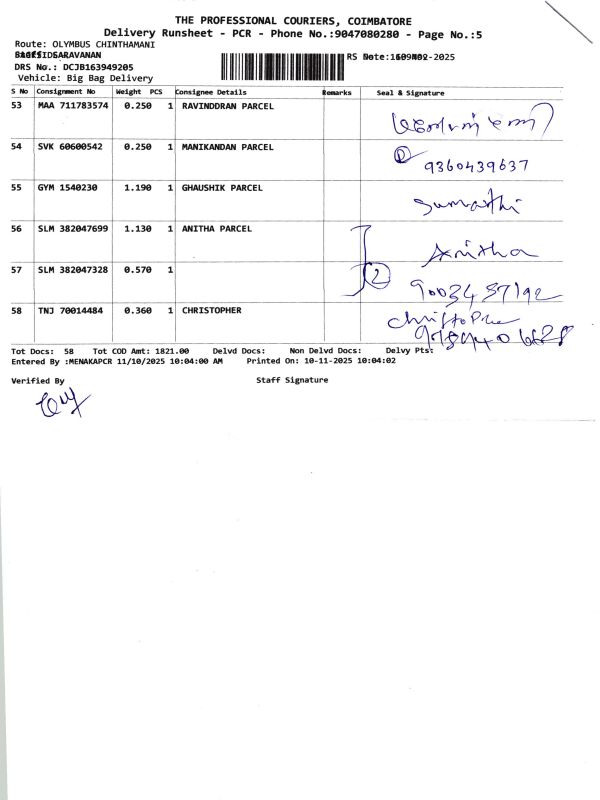 THE PROFESSIONAL COURIERS, COIMBATORE
Delivery Runsheet - PCR - Phone No.:9047080280 - Page No.:5
Route: OLYMBUS CHINTHAMANI
SARAVANAN
DRS No.: DCJB163949205
Vehicle: Big Bag Delivery
S No Consignment No Weight PCS Consignee Details Remarks Seal & Signature
53 MAA 711783574 0.250 1 RAVINDDRAN PARCEL
54 SVK 60600542 0.250 1 MANIKANDAN PARCEL
9360439637
55 GYM 1540230 1.190 1 GHAUSHIK PARCEL
Sumathi
56 SLM 382047699 1.130 1 ANITHA PARCEL
Anitha
57 SLM 382047328 0.570 1
2
58 TNJ 70014484 0.360 1 CHRISTOPHER
Tot Docs: 58 Tot COD Amt: 1821.00 Delvd Docs: Non Delvd Docs: Delvy Pts:
Entered By :MENAKAPCR 11/10/2025 10:04:00 AM Printed On: 10-11-2025 10:04:02
Verified By Staff Signature